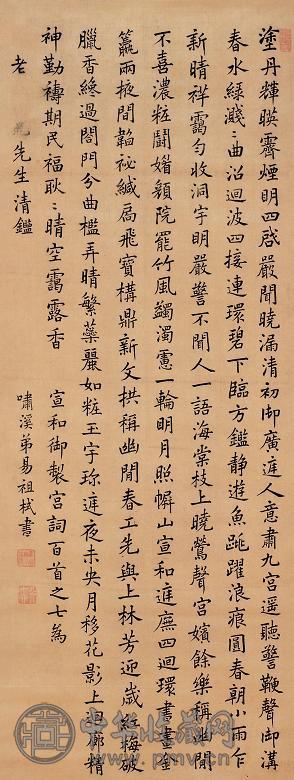 塗丹輝暎霽煙明四啓嚴閶曉漏清初御廣庭人意肅九宮遥聽警鞭聲御溝
春水綠濺〻曲沼迴波四接連環碧下臨方鑑静遊魚跳躍浪痕圓春朝小雨乍
新晴祥靄勻收洞宇明嚴警不聞人一語海棠枝上曉鶯聲宮嬪餘樂稱幽閒
不喜濃粧鬪媚顏院罷竹風蠲濁慮一輪明月照幈山宣和庭廡四迴環畫
籯兩掖間韞祕緘扃飛寶構鼎新文拱稱幽閒春工先與上林芳迎歲紅梅破
臘香纔過閤門分曲檻弄晴繁藥麗如粧玉宇珎庭夜未央月移花影上迴廊精
神勤禱期民福耿〻晴空靄露香
宣和御製宮詞百首之七為
老先生清鑑
嘯溪弟易祖栻書
中华收藏网